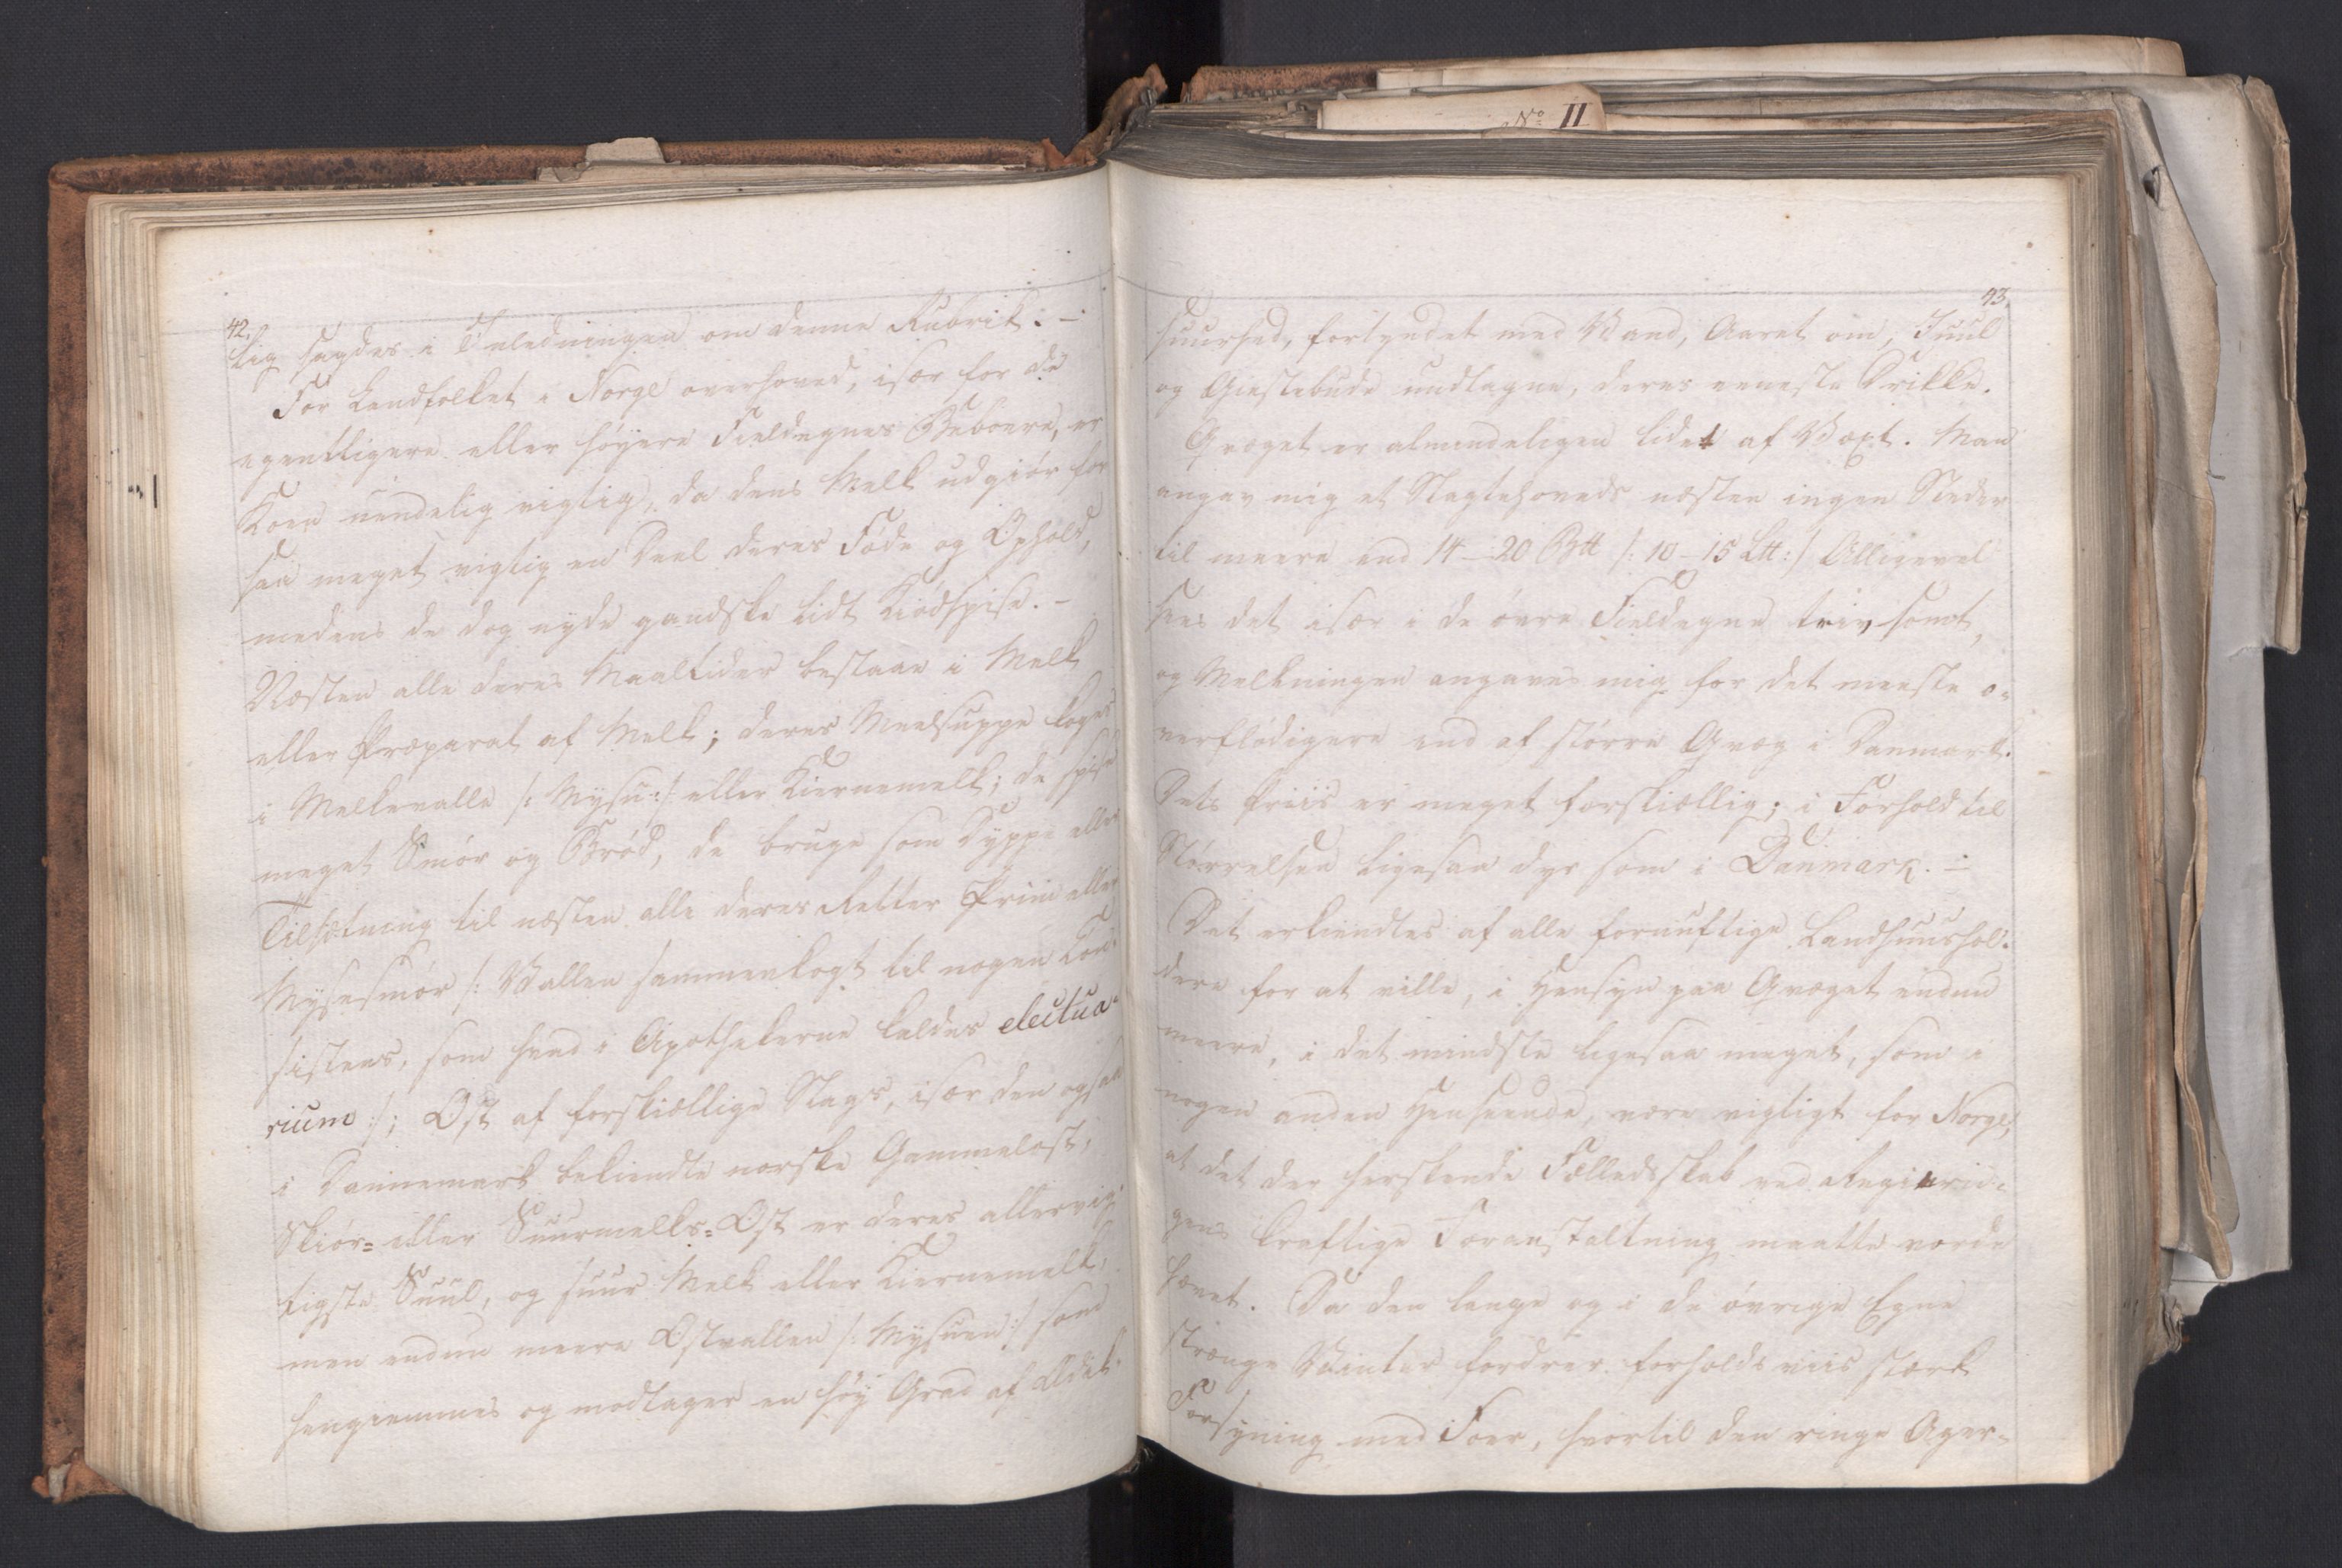 No II
42.
lig sagdes i Inledningen om denne Rubrik. –
For Landfolket i Norge overhoved, især for de
egentligere eller høyere Fieldegnes Beboere, er
Koen uendelig vigtig, da dens Melk udgiør for
saa meget vigtig en Deel deres Føde og Ophold,
medens de dog nyde gandske lidt Kiødspise. –
Næsten alle deres Maaltider bestaae i Melk
eller Præparat af Melk; deres Meelsuppe koges
i Melkevalle /: Mysu :/ eller Kiernemelk; de spise
meget Smør og Brød, de bruge som Dyppe eller
Tilsætning til næsten alle deres Retter Priim eller
Mysesmør /: Vallen sammenkogt til nogen Con-
sistens, som hvad i Apothekerne kaldes electua-
rium :/; Ost af forskiællige Slags, især den ogsaa
i Dannemark bekiendte norske Gammelost,
Skiør= eller Suurmelks=Ost er deres allervig-
tigste Suul, og suur Melk eller Kiernemelk,
men endnu meere Ostvallen /: Mysuen :/ som
hengiemmes og modtager en høy Grad af Ædik-
43.
suurhed, fortyndet med Vand, Aaret om, Juul
og Giestebude undtagne, deres eeneste Drikke.
Qvæget er almindeligen lidet af Væxt. Man
angav mig et Slagtehoveds næsten ingen Steder
til meere end 14–20 B℔ /: 10–15 L℔ :/ Alligevel
sees det især i de øvre Fieldegne trivsomt,
og Melkningen angaves mig for det meeste o-
verflødigere end af større Qvæg i Danmark.
Dets Priis er meget forskiællig; i Forhold til
Størrelsen ligesaa dyr som i Danmark. –
Det erkiendtes af alle fornuftige Landhuushol-
dere for at ville, i Hensyn paa Qvæget endnu
meere, i det mindste ligesaa meget, som i
nogen anden Henseende, være vigtigt for Norge,
at det der herskende Fælledsskab ved Regierin-
gens kraftige Foranstaltning maatte vorde
hævet. Da den lange og i de øvrige Egne
strænge Vinter fordrer forholdsviis stærk
Forsyning med Foer, hvortil den ringe Ager-